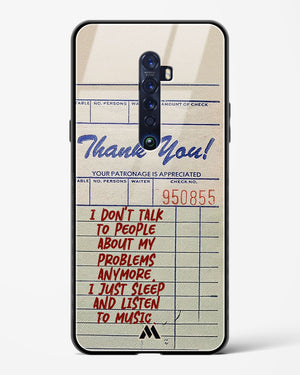 ABLE NO. PERSONS WAITER AMOUNT OF CHECK
Thank You!
YOUR PATRONAGE IS APPRECIATED
ABLE NO. PERSONS WAITER CHECK NO.
950855
I DON'T TALK
TO PEOPLE
ABOUT MY
PROBLEMS
ANYMORE.
I JUST SLEEP
AND LISTEN
TO MUSIC